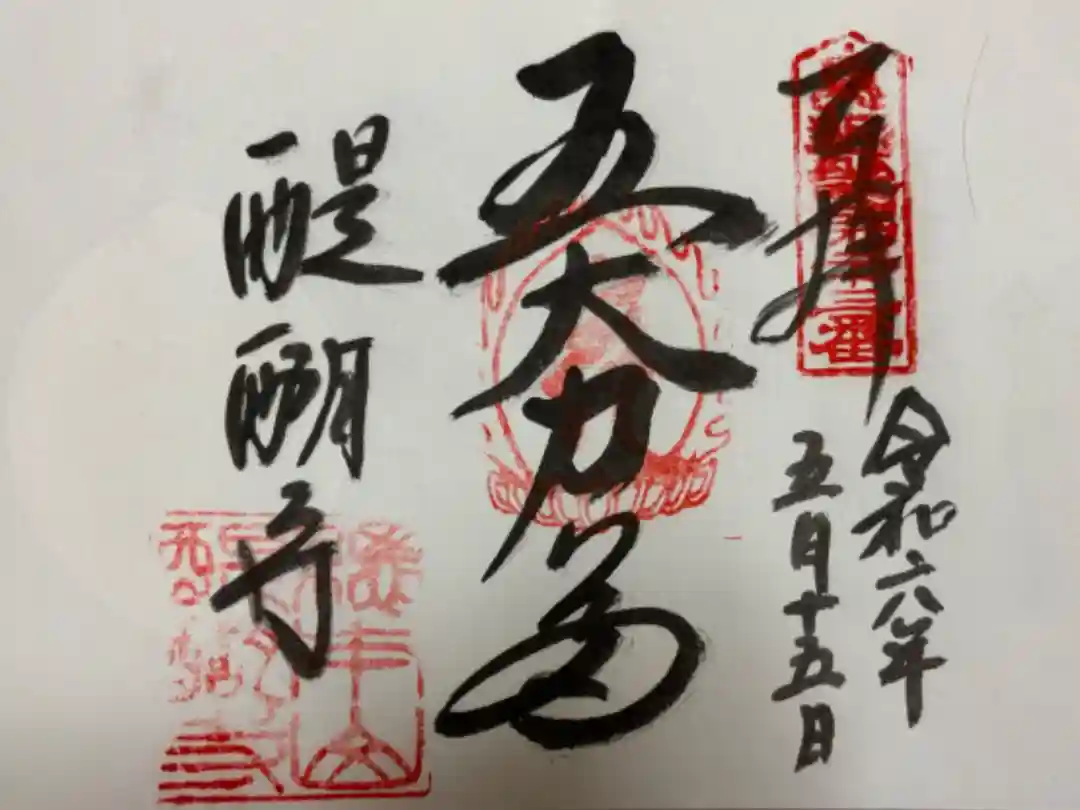 奉拝
令和六年
五月十五日
五大力尊
醍醐寺